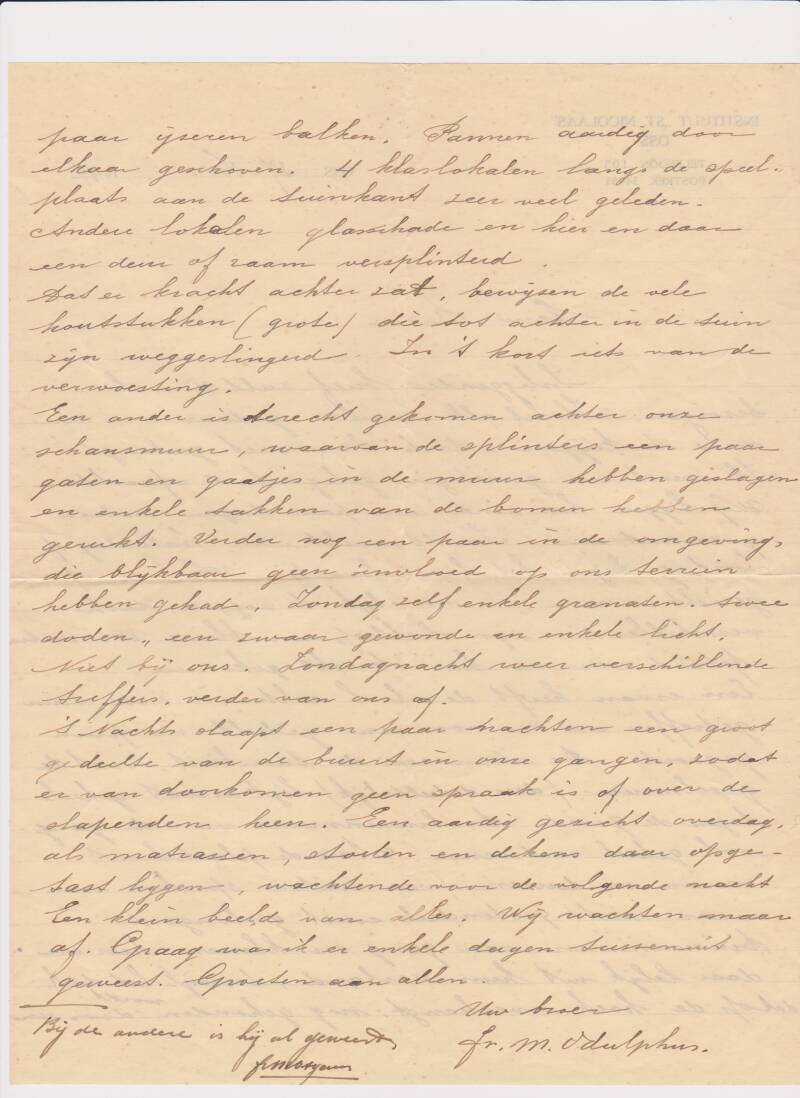 paar ijzeren balken. Pannen aardig door
elkaar geschoven. 4 klaslokalen langs de speel-
plaats aan de tuinkant zeer veel geleden.
Andere lokalen glasschade en hier en daar
een deur of raam versplinterd.
Dat er kracht achter zat, bewijzen de vele
houtstukken (grote) die tot achter in de tuin
zijn weggeslingerd. In 't kort iets van de
verwoesting.
Een ander is terecht gekomen achter onze
schansmuur, waarvan de splinters een paar
gaten en gaatjes in de muur hebben geslagen
en enkele takken van de bomen hebben
gerukt. Verder nog een paar in de omgeving,
die blijkbaar geen invloed op ons terrein
hebben gehad. Zondag zelf enkele granaten. twee
doden, een zwaar gewonde en enkele licht.
Niet bij ons. Zondagnacht weer verschillende
treffers. verder van ons af.
's Nachts slaapt een paar nachten een groot
gedeelte van de buurt in onze gangen, zodat
er van doorkomen geen spraak is of over de
slapenden heen. Een aardig gezicht overdag,
als matrassen, stoelen en dekens daar opge-
tast liggen, wachtende voor de volgende nacht
Een klein beeld van alles. Wij wachten maar
af. Graag was ik er enkele dagen tussenuit
geweest. Groeten aan allen.
Uw broer
fr. M. Odulphus.
Bij de andere is hij al geweest,
INSTITUUT ST. NICOLAAS
OSS